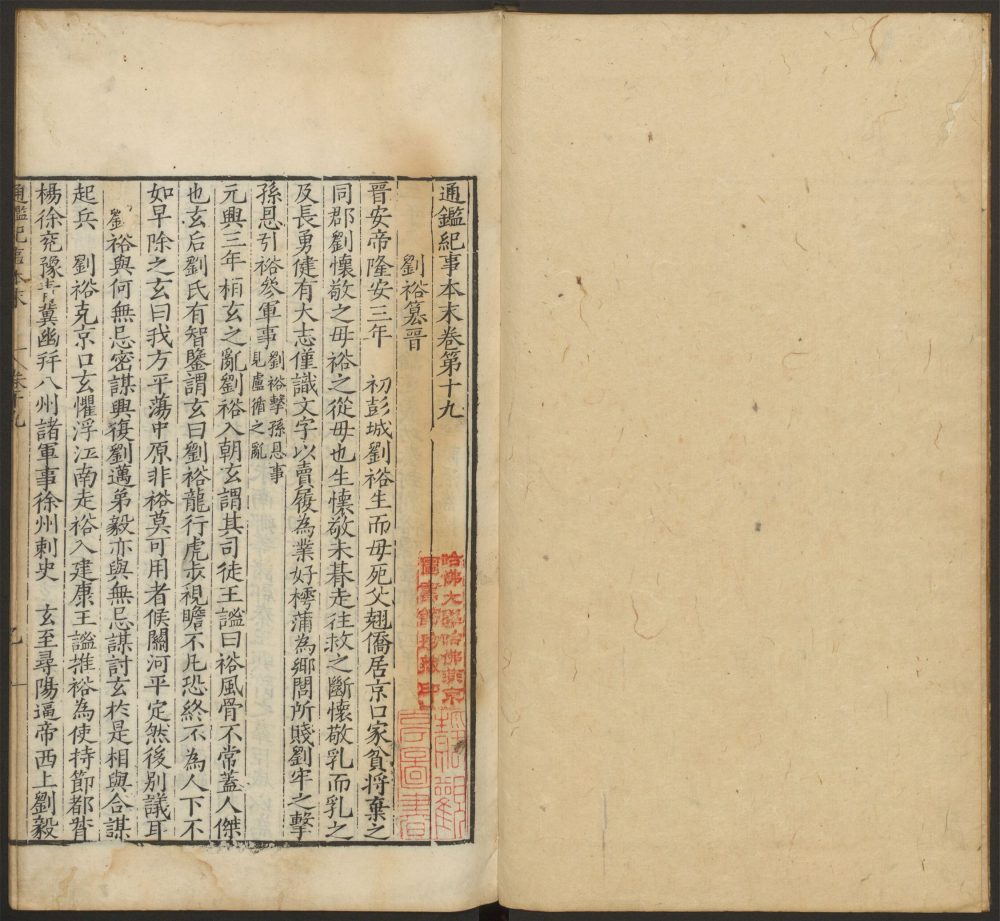 通鑑紀事本末卷第十九
劉裕篡晉
晉安帝隆安三年 初彭城劉裕生而母死父翹僑居京口家貧將棄之
同郡劉懷敬之母裕之從母也生懷敬未朞走往救之斷懷敬乳而乳之
及長勇健有大志僅識文字以賣履為業好樗蒲為鄉閭所賤劉牢之擊
孫恩引裕參軍事劉裕擊孫恩事見盧循之亂
元興三年桓玄之亂劉裕入朝玄謂其司徒王謐曰裕風骨不常蓋人傑
也玄后劉氏有智鑒謂玄曰劉裕龍行虎步視瞻不凡恐終不為人下不
如早除之玄曰我方平蕩中原非裕莫可用者俟關河平定然後別議耳
劉裕與何無忌密謀興復劉邁弟毅亦與無忌謀討玄於是相與合謀
起兵 劉裕克京口玄懼浮江南走裕入建康王謐推裕為使持節都督
楊徐兗豫青冀幽并八州諸軍事徐州刺史 玄至尋陽逼帝西上劉毅
通鑑紀事本末 卷十九
哈佛大學哈佛燕京
圖書館珍藏印